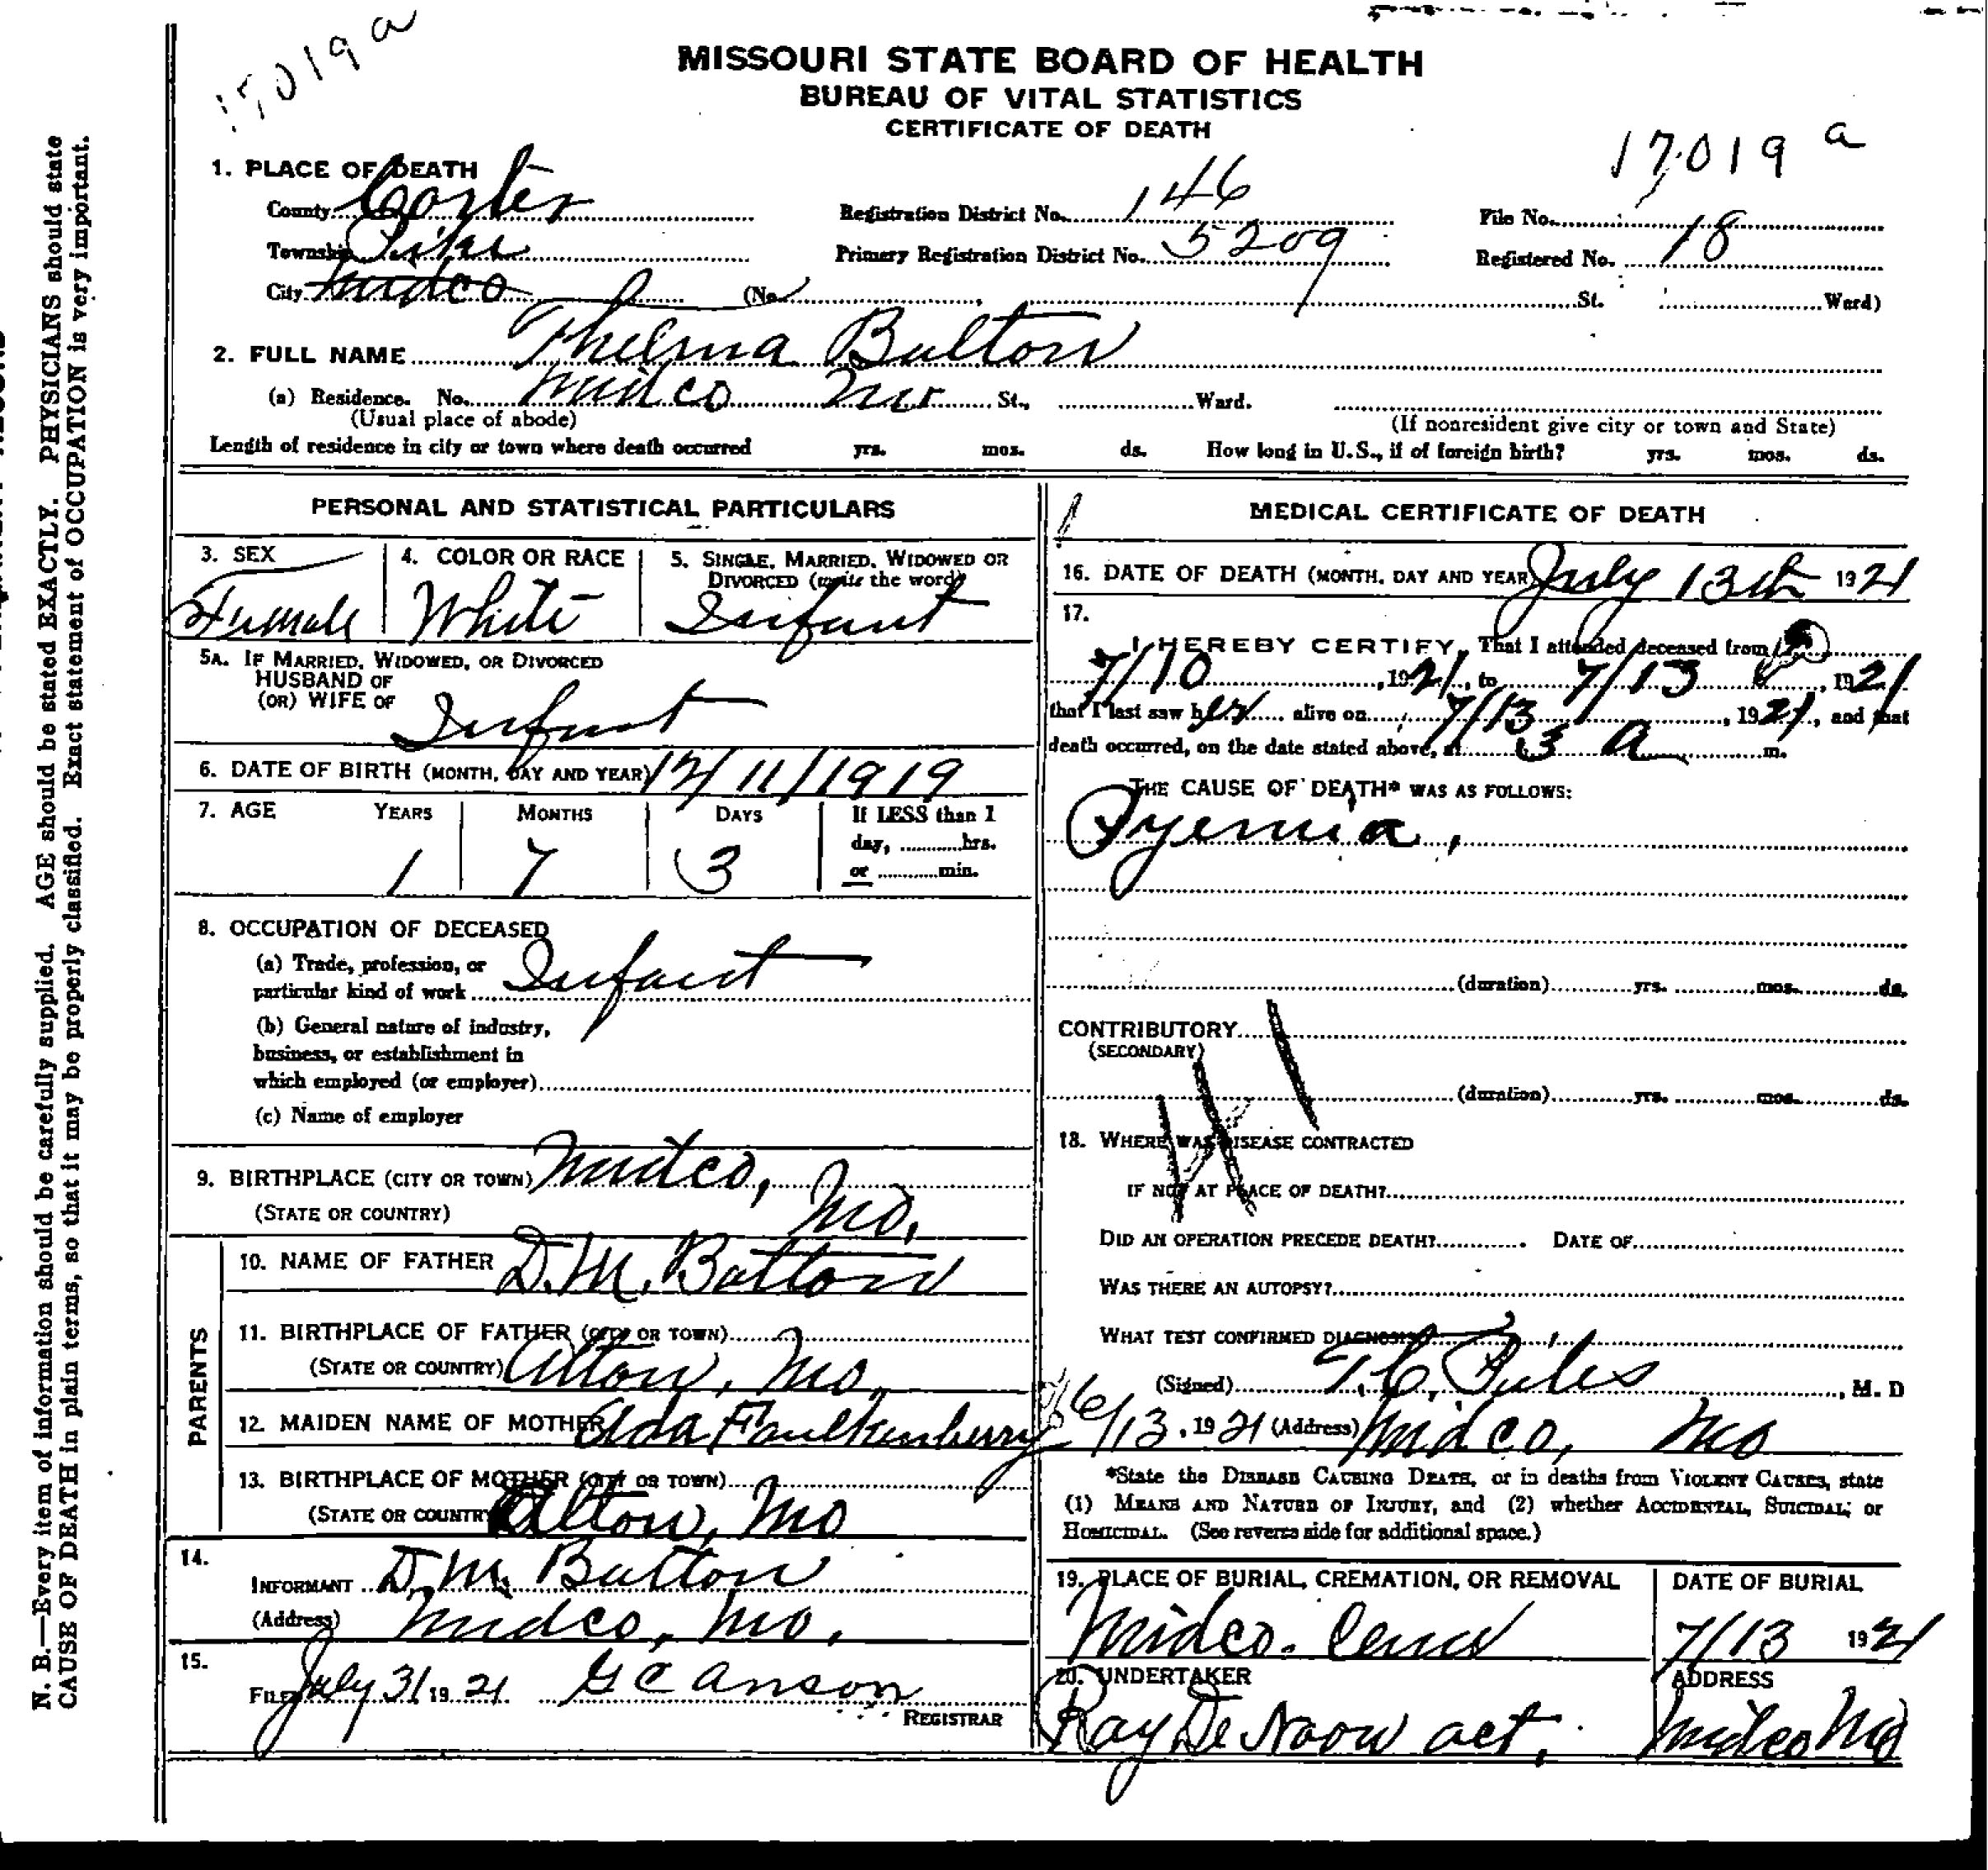 17019 a
MISSOURI STATE BOARD OF HEALTH
BUREAU OF VITAL STATISTICS
CERTIFICATE OF DEATH
17019 a
1. PLACE OF DEATH
County Carter Registration District No. 146 File No.
Township Pike Primary Registration District No. 5209 Registered No. 18
City Midco (No. , St. Ward)
2. FULL NAME Thelma Button
(a) Residence. No. Midco Mo St., Ward.
(Usual place of abode) (If nonresident give city or town and State)
Length of residence in city or town where death occurred yrs. mos. ds. How long in U.S., if of foreign birth? yrs. mos. ds.
PERSONAL AND STATISTICAL PARTICULARS
3. SEX 4. COLOR OR RACE 5. SINGLE, MARRIED, WIDOWED OR
DIVORCED (write the word)
Female White Infant
5A. IF MARRIED, WIDOWED, OR DIVORCED
HUSBAND OF
(OR) WIFE OF Infant
6. DATE OF BIRTH (MONTH, DAY AND YEAR) 12/11/1919
7. AGE YEARS MONTHS DAYS If LESS than 1
day, hrs.
1 7 3 or min.
8. OCCUPATION OF DECEASED
(a) Trade, profession, or
particular kind of work Infant
(b) General nature of industry,
business, or establishment in
which employed (or employer)
(c) Name of employer
9. BIRTHPLACE (CITY OR TOWN) Midco,
(STATE OR COUNTRY) Mo.
PARENTS
10. NAME OF FATHER D. M. Button
11. BIRTHPLACE OF FATHER (CITY OR TOWN)
(STATE OR COUNTRY) Alton, Mo.
12. MAIDEN NAME OF MOTHER Elda Faulkenberry
13. BIRTHPLACE OF MOTHER (CITY OR TOWN)
(STATE OR COUNTRY) Alton, Mo
14.
INFORMANT D. M. Button
(Address) Midco, Mo.
15.
FILED July 31 1921 G C Anson
REGISTRAR
MEDICAL CERTIFICATE OF DEATH
16. DATE OF DEATH (MONTH, DAY AND YEAR) July 13th 1921
17.
I HEREBY CERTIFY, That I attended deceased from
7/10, 1921, to 7/13, 1921
that I last saw her alive on 7/13, 1921, and that
death occurred, on the date stated above, at 3 A m.
THE CAUSE OF DEATH* WAS AS FOLLOWS:
Pyemia,
(duration) yrs. mos. ds.
CONTRIBUTORY
(SECONDARY)
(duration) yrs. mos. ds.
18. WHERE WAS DISEASE CONTRACTED
IF NOT AT PLACE OF DEATH?
DID AN OPERATION PRECEDE DEATH? DATE OF
WAS THERE AN AUTOPSY?
WHAT TEST CONFIRMED DIAGNOSIS?
(Signed) T. C. , M. D
6/13, 1921 (Address) Midco, Mo
*State the DISEASE CAUSING DEATH, or in deaths from VIOLENT CAUSES, state
(1) MEANS AND NATURE OF INJURY, and (2) whether ACCIDENTAL, SUICIDAL, or
HOMICIDAL. (See reverse side for additional space.)
19. PLACE OF BURIAL, CREMATION, OR REMOVAL DATE OF BURIAL
Midco. Cem 7/13 1921
20. UNDERTAKER ADDRESS
Ray De Noow act. Midco Mo
N. B.—Every item of information should be carefully supplied. AGE should be stated EXACTLY. PHYSICIANS should state
CAUSE OF DEATH in plain terms, so that it may be properly classified. Exact statement of OCCUPATION is very important.